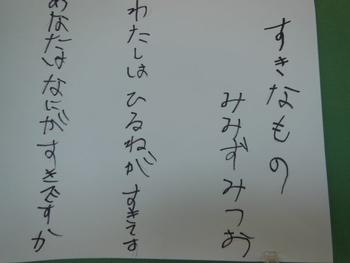 すきなもの
みみずみつお
わたしは ひるねが すきです
あなたは なにが すきですか